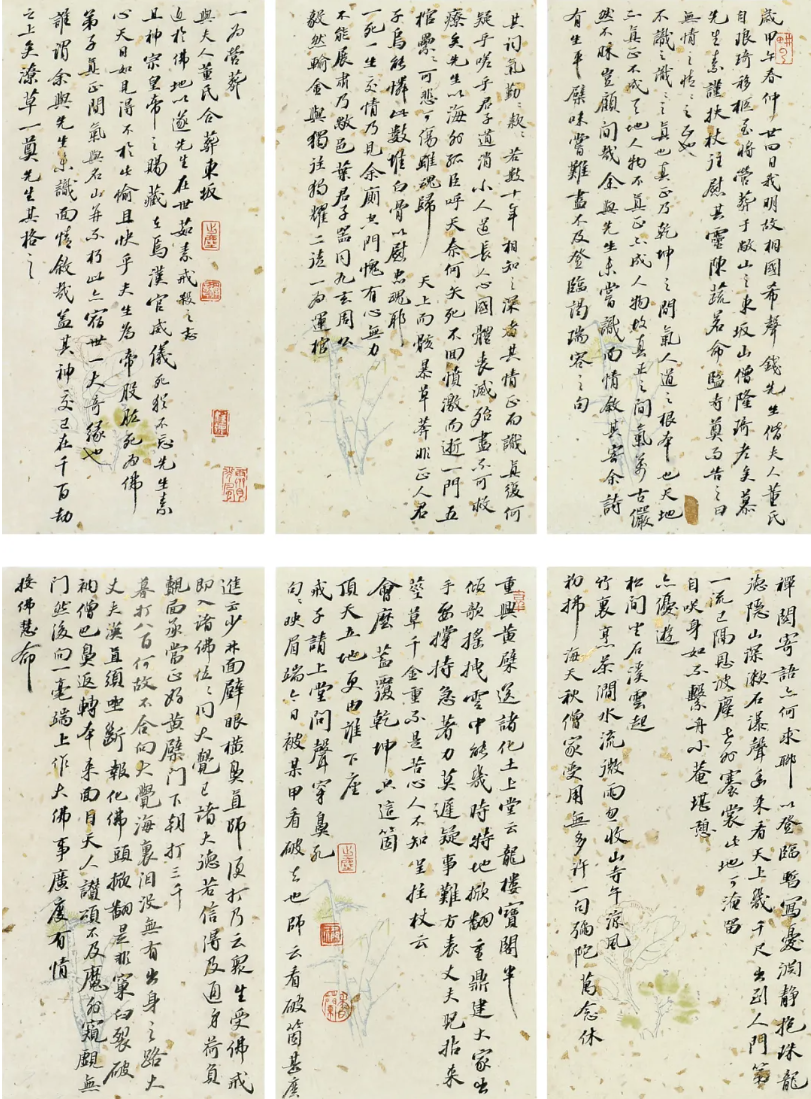 歲甲午春仲廿四日我明故相國希聲錢先生偕夫人董氏
自琅琦移柩至將營葬于敝山之東坂山僧隆琦老矣慕
先生素謹扶杖往慰其靈陳蔬茗命監寺奠而告之曰
無情之情情之至也
不識之識識之真也真正乃乾坤之間氣人道之根本也天地
不真正不成天地人物不真正不成人物故真正之間氣萬古儼
然不昧豈顧問哉余與先生未嘗識面情敘其寄余詩
有生平檗味嘗難盡不及登臨謁瑞容之句
其詞氣勤勤款款若數十年相知之深者其情正而識真復何
疑乎嗟乎君子道消小人道長人心國體喪滅殆盡不可收
療矣先生以海外孤臣呼天奈何矢死不回憤激而逝一門五
棺纍纍可悲可傷雖魂歸 天上而骸暴草莽非正人君
子烏能憐此數堆白骨以慰忠魂耶
一死一生交情乃見余廁空門愧有心無力
不能展肅乃敝邑葉君子器同九玄周公
毅然輸金與獨往獨耀二詰一為運棺
一為營葬
與夫人董氏合葬東坂
近於佛地以遂先生在世茹素戒殺之志
且神宗皇帝之賜藏在焉漢官威儀死猶不忘先生素
心天日如見得不於此愉且快乎夫生為帝股肱死為佛
弟子真正間氣與名山并不朽此亦宿世一大奇緣也
誰謂余與先生未識面情敘哉蓋其神交已在千百劫
之上矣潦草一奠先生其格之
禪關寄語亦何求聊以登臨暫寫憂澗靜抱珠龍
隱山深漱石瀑聲來看天上幾千尺出到人間第
一流已隔恩波塵世外褰裳此地可淹留
自咲身如不繫舟小菴堪憩
亦優遊
松間坐石溪雲起
竹裏烹茶澗水流微雨收山寺午涼風
初拂海天秋僧家受用無多許一句彌陀萬念休
重興黃檗送諸化士上堂云龍樓寶閣半
傾欹搖拽雲中能幾時特地掀翻重鼎建大家出
手要撐持急著力莫遲疑事難方表丈夫兒拈來
莖草千金重不是苦心人不知呈拄杖云
會麼蓋覆乾坤只這箇
頂天立地更由誰下座
戒子請上堂問聲聲穿鼻孔
句句映眉端今日被某甲看破去也師云看破箇甚麼
進云少林面壁眼橫鼻直師便打乃云眾生受佛戒
即入諸佛位位同大覺已諸大德若信得及通身荷負
覿面承當正好黃檗門下朝打三千
暮打八百何故不合向大覺海裏汩沒無有出身之路大
丈夫漢直須坐斷報化佛頭掀翻是非窠臼裂破
衲僧巴鼻返轉本來面目天人讚頌不及魔外窺覷無
門然後向一毫端上作大佛事廣度有情
接佛慧命